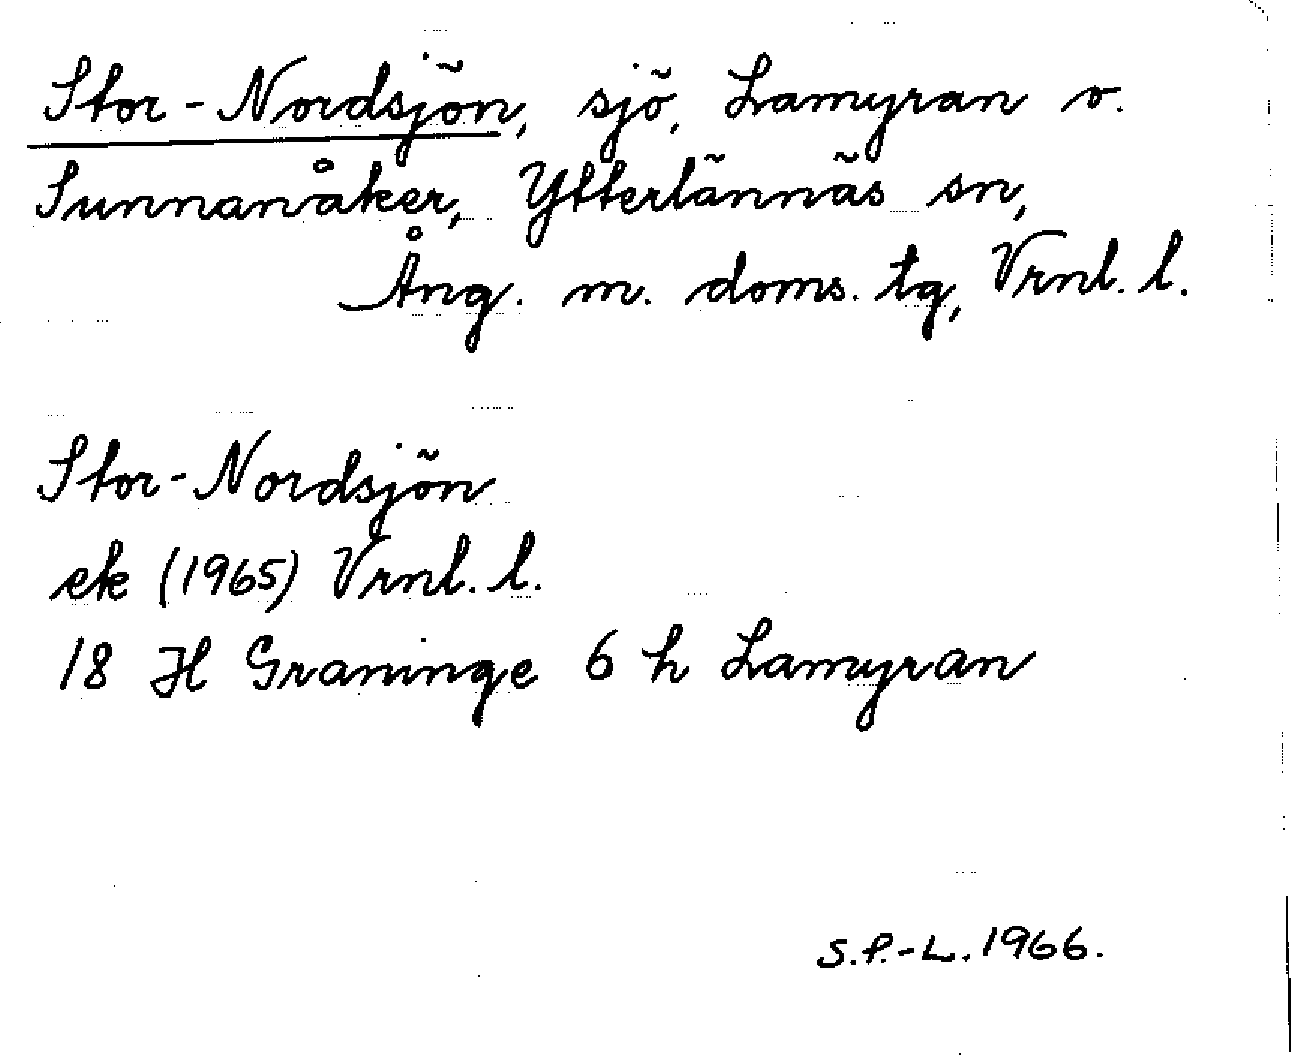 Stor-Nordsjön, sjö, Lamyran o.
Sunnanåker, Ytterlännäs sn,
Ång. m. doms. tg, Vrnl. l.
Stor-Nordsjön
ek (1965) Vrnl. l.
18 H Graninge 6 h Lamyran
S.P.-L. 1966.